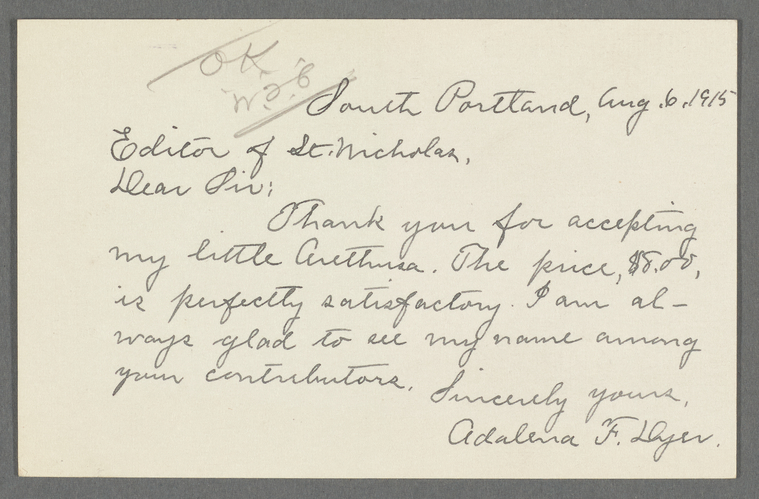 OK.
W.F.C.
South Portland, Aug. 6, 1915
Editor of St. Nicholas,
Dear Sir:
Thank you for accepting
my little Arethusa. The price, $8.00,
is perfectly satisfactory. I am al-
ways glad to see my name among
your contributors.
Sincerely yours,
Adalena F. Dyer.